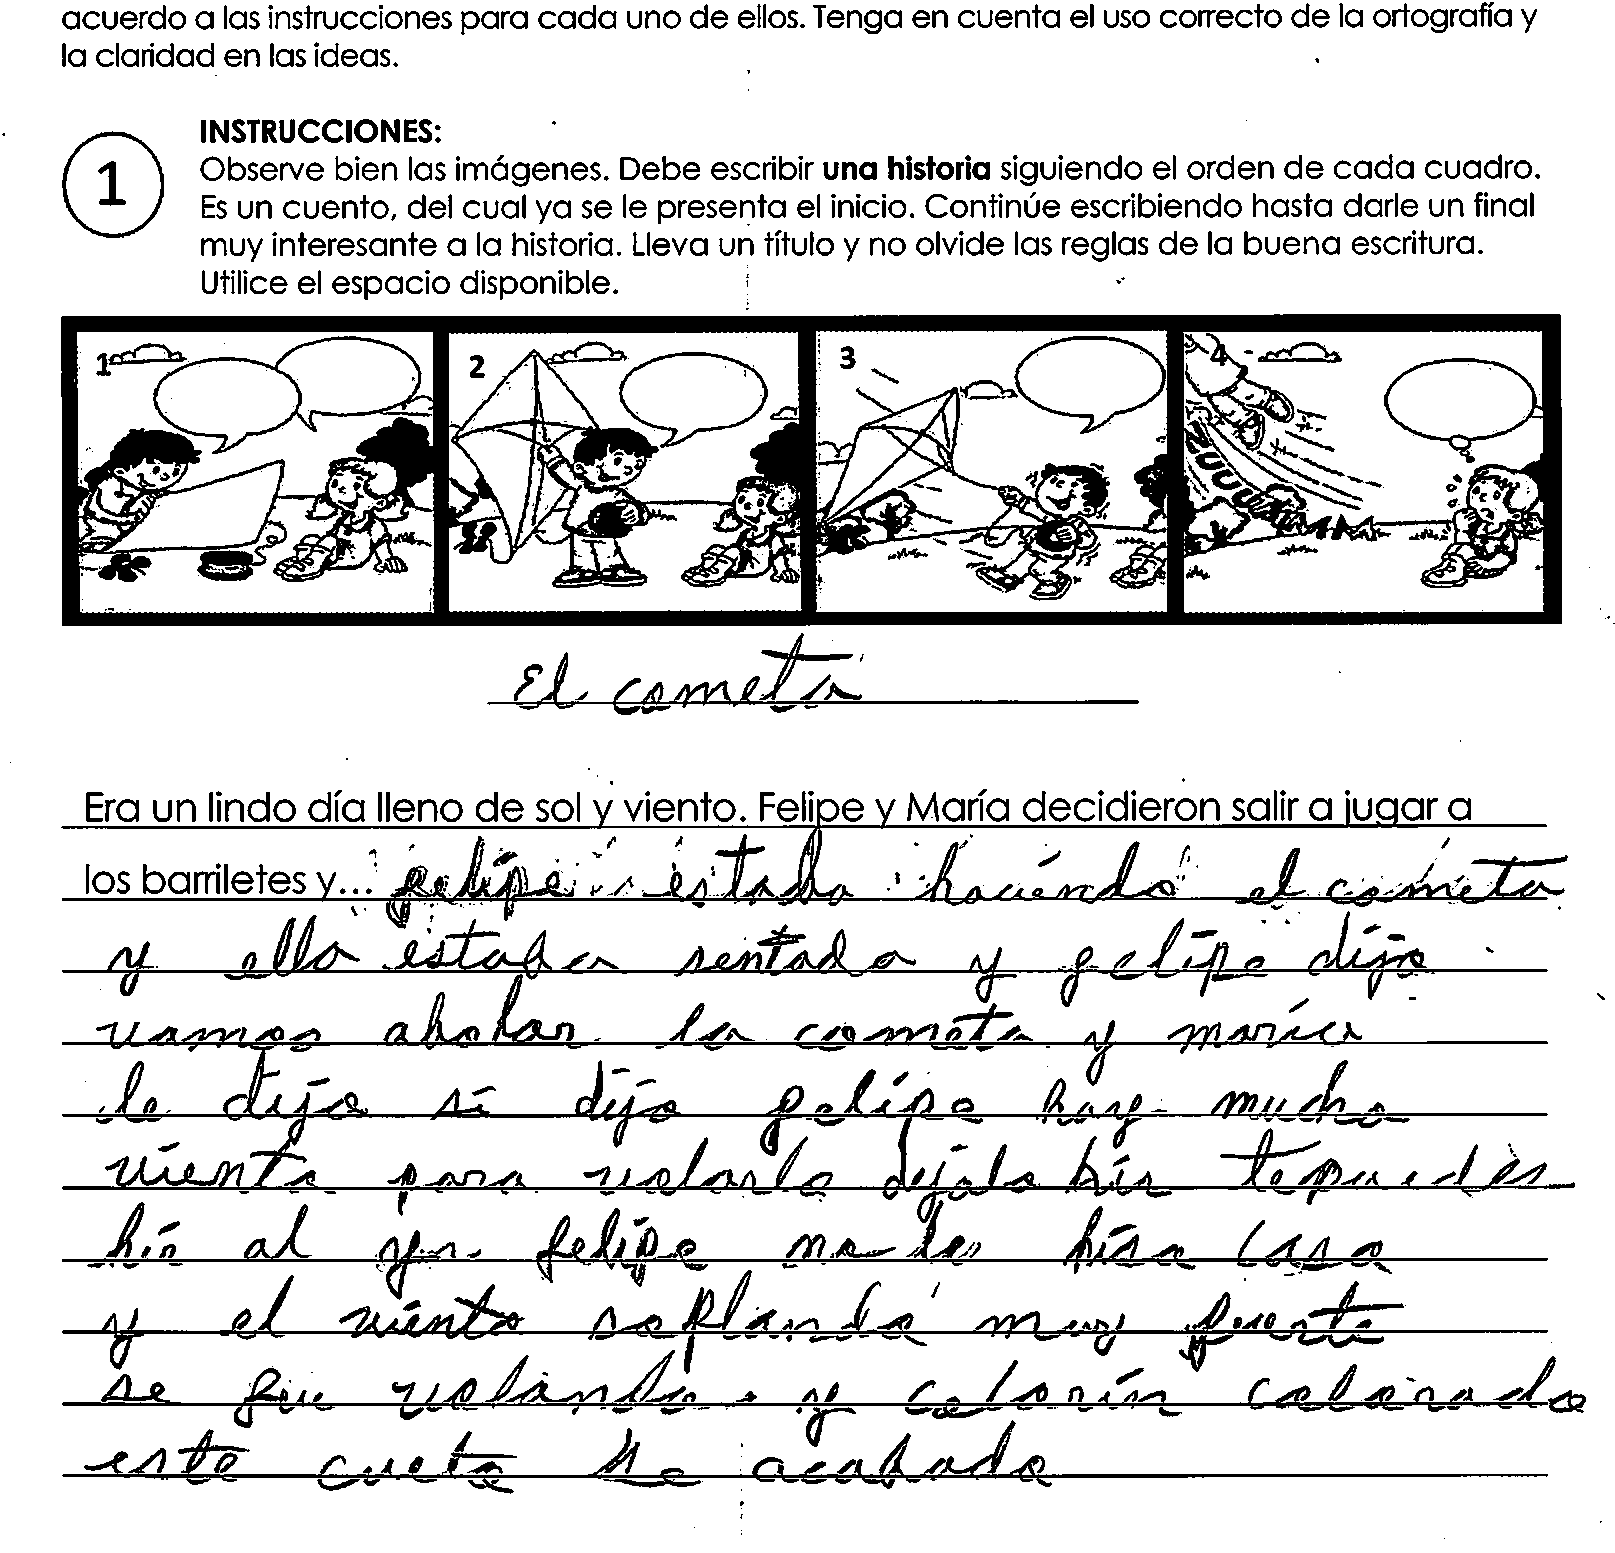 acuerdo a las instrucciones para cada uno de ellos. Tenga en cuenta el uso correcto de la ortografía y
la claridad en las ideas.
1
INSTRUCCIONES:
Observe bien las imágenes. Debe escribir una historia siguiendo el orden de cada cuadro.
Es un cuento, del cual ya se le presenta el inicio. Continúe escribiendo hasta darle un final
muy interesante a la historia. Lleva un título y no olvide las reglas de la buena escritura.
Utilice el espacio disponible.
1 2 3 4
El cometa
Era un lindo día lleno de sol y viento. Felipe y María decidieron salir a jugar a
los barriletes y... felipe estaba haciendo el cometa
y ella estaba sentada y felipe dijo
vamos abolar la cometa y maría
le dijo si dijo felipe hay mucho
viento para volarlo dejalo hir te puedes
hir al felipe no le hiso caso
y el viento soplando muy fuerte
se fue volando. y colorín colorado
este cueto se acabado